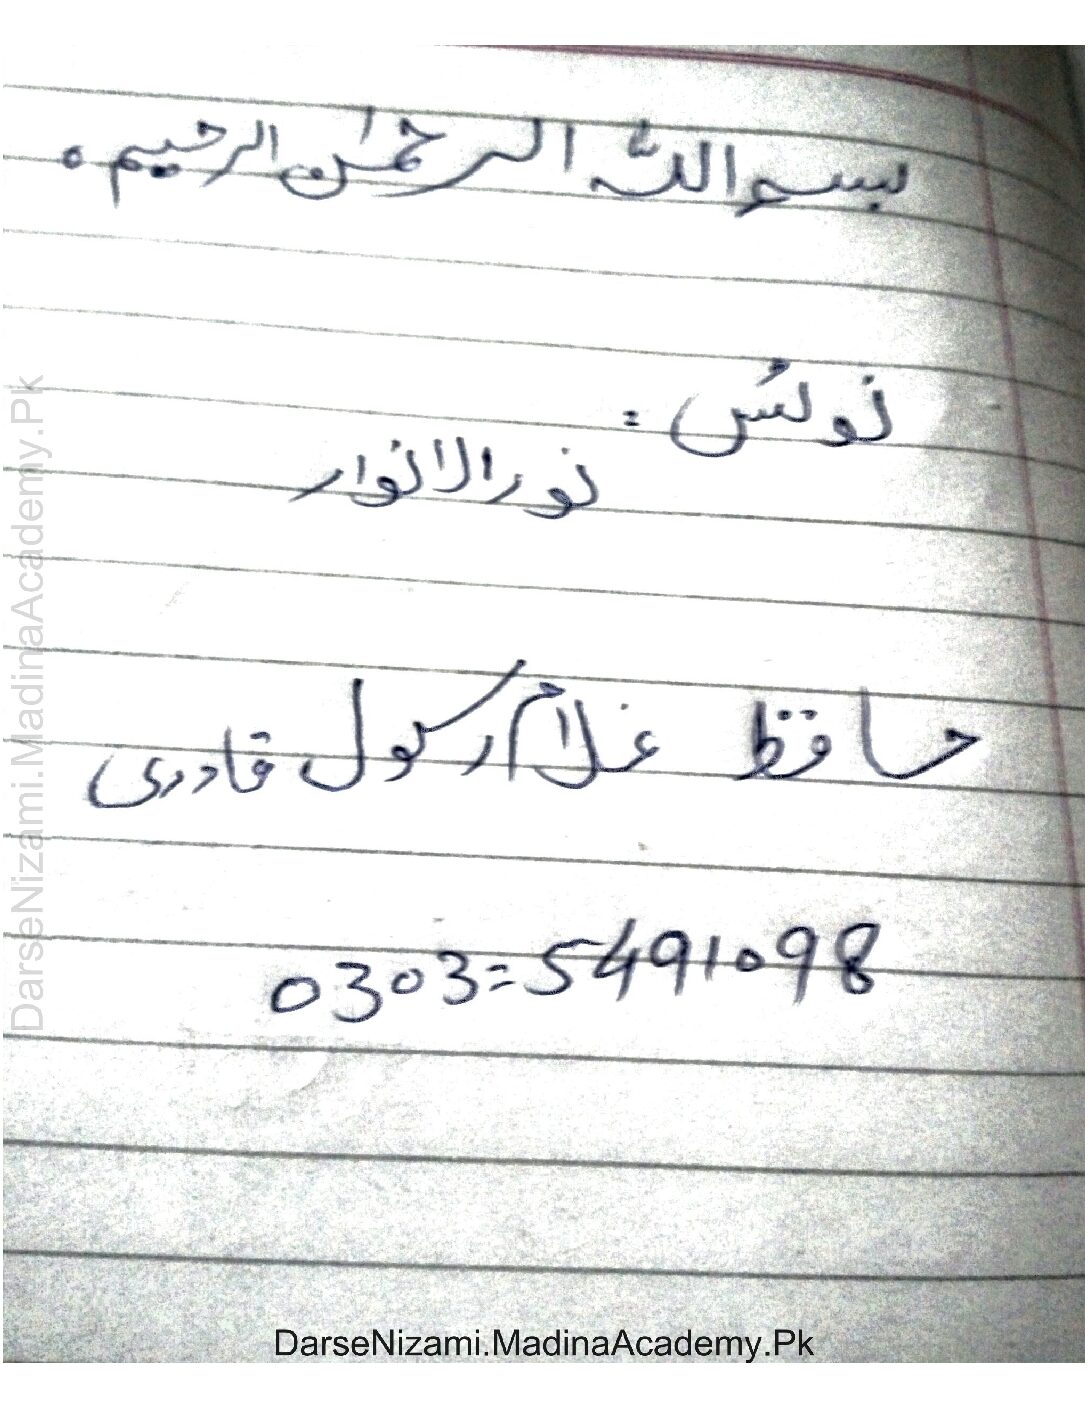 بسم اللہ الرحمٰن الرحیم ہ
نوٹس :
نور الانوار
حافظ غلام رسول قادری
0303=5491098
DarseNizami.MadinaAcademy.Pk
DarseNizami.MadinaAcademy.Pk